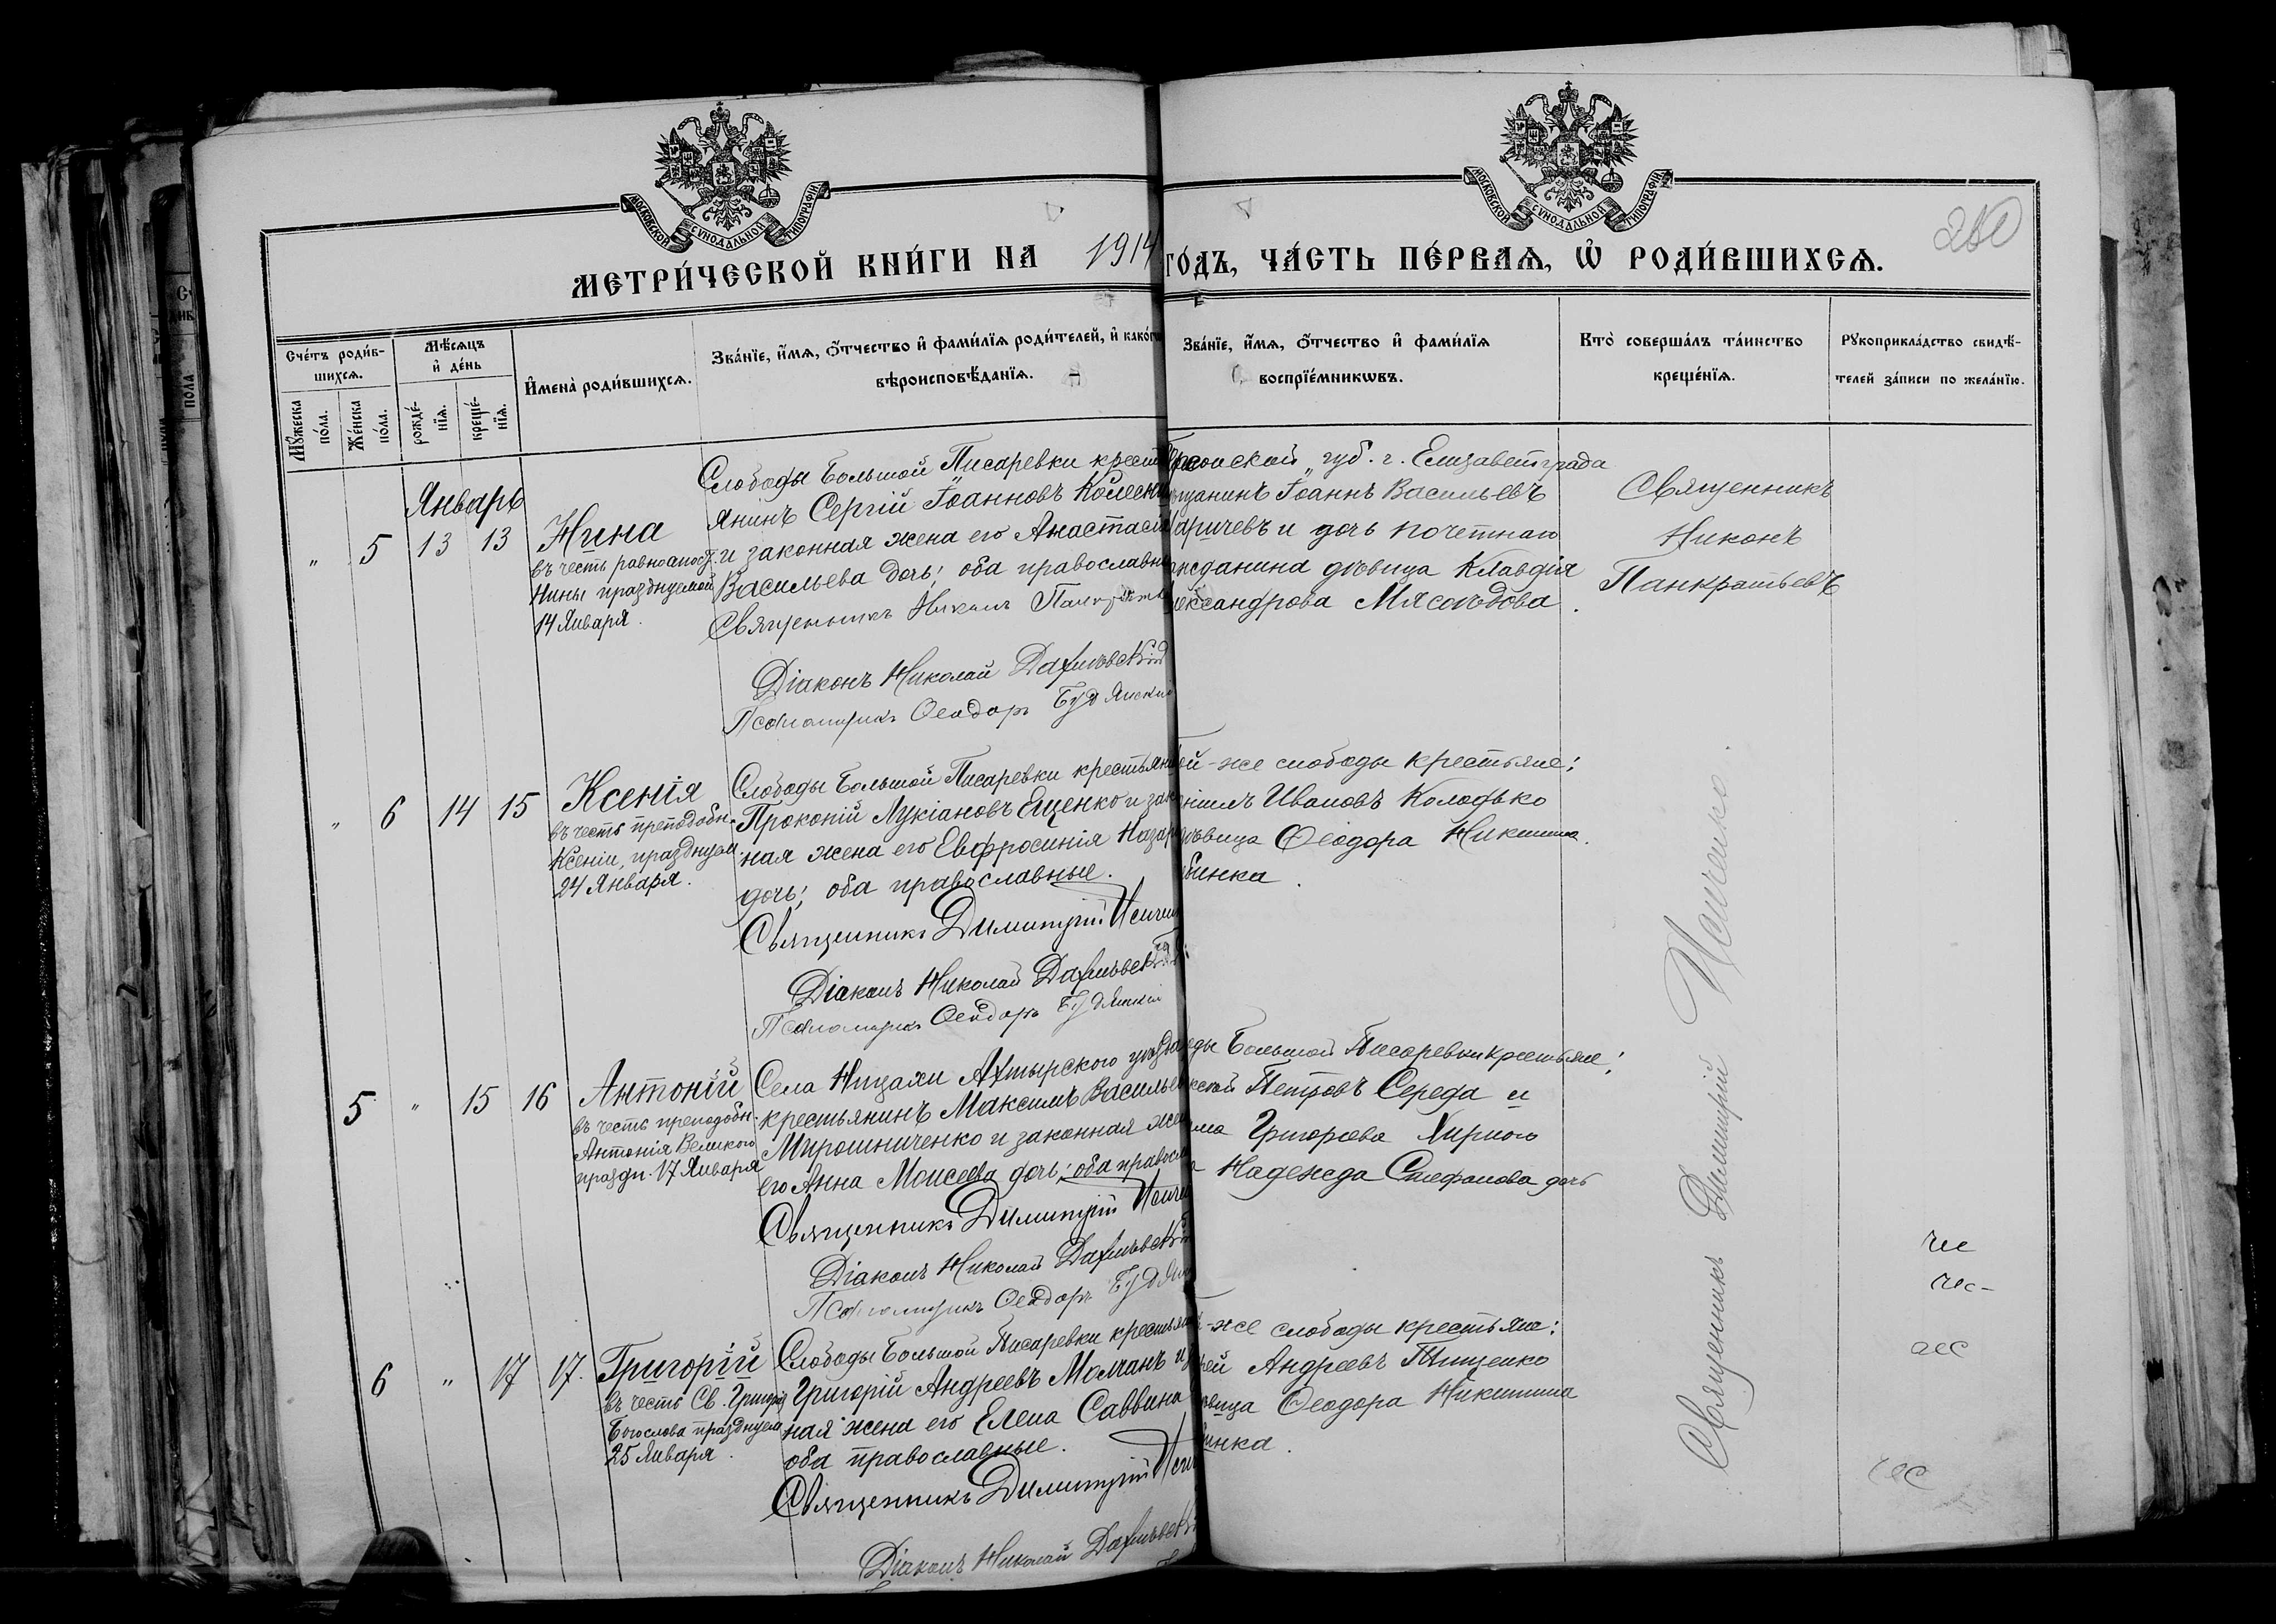 МОСКОВСКОЙ СѴНОДАЛЬНОЙ ТИПОГРАФІИ
МОСКОВСКОЙ СѴНОДАЛЬНОЙ ТИПОГРАФІИ
МЕТРИ́ЧЕСКОЙ КНИ́ГИ НА 1914
ГО́ДЪ, ЧА́СТЬ ПЕ́РВАѦ, Ѡ РОДИ́ВШИХСѦ.
Сче́тъ роди́в-
шихсѧ.
Мꙋ́жеска
по́ла.
Же́нска
по́ла.
Мѣ́сѧцъ
и҆ де́нь
рожде́-
нїѧ.
креще́-
нїѧ.
И҆мена̀ роди́вшихсѧ.
Зва́нїе, и҆́мѧ, ѻ҆́тчество и҆ фами́лїѧ роди́телей, и҆ како́г
вѣроисповѣ́данїѧ.
Зва́нїе, и҆́мѧ, ѻ҆́тчество и҆ фами́лїѧ
воспрїе́мникѡвъ.
Кто̀ соверша́лъ та́инство
креще́нїѧ.
Рꙋкоприкла́дство свидѣ́-
телей за́писи по жела́нїю.
Январь
" 5 13 13
Нина
въ честь равноапост.
Нины празднуемой
14 Января.
Слободы Большой Писаревки крест
янинъ Сергій Іоанновъ Колесн
и законная жена его Анастасія
Васильева дочь; оба православн
Священникъ Никонъ Панкратье
Діаконъ Николай
Псаломщикъ Ѳеодоръ Будянскій
губ. г. Елизаветграда
щанинъ Іоаннъ Васильевъ
аричевъ и дочь почетнаго
жданина дѣвица Клавдія
ександрова Мясоѣдова.
Священникъ
Никонъ
Панкратьевъ
" 6 14 15
Ксенія
въ честь преподобн.
Ксеніи, празднуем.
24 Января.
Слободы Большой Писаревки крестьян
Прокопій Лукіановъ Яценко и зак
ная жена его Евфросинія Назар
дочь; оба православные.
Священникъ Димитрій
Діаконъ Николай
Псаломщикъ Ѳеодоръ Будянскій
ой-же слободы крестьяне:
ніилъ Ивановъ Колодько
дѣвица Ѳеодора Никитина
бинка.
5 " 15 16
Антоній
въ честь преподобн.
Антонія Великого
праздн. 17 Января
Села Ницахи Ахтырского уѣзда
крестьянинъ Максимъ Васильев
Мирошниченко и законная жен
его Анна Моисеева дочь; оба правосл
Священникъ Димитрій
Діаконъ Николай
Псаломщикъ Ѳеодоръ
ды Большой Писаревки крестьяне:
Петровъ Середа и
Григорьева
Надежда Стефанова дочь
6 " 17 17.
Григорій
въ честь Св. Григорія
Богослова празднуем
25 Января.
Слободы Большой Писаревки крестьян
Григорій Андреевъ Молчанъ и
ная жена его Елена Саввина
оба православные.
Священникъ Димитрій
Діаконъ Николай
-же слободы крестьяне:
ей Андреевъ Тищенко
вица Ѳеодора Никитина
инка.
Священникъ Димитрій